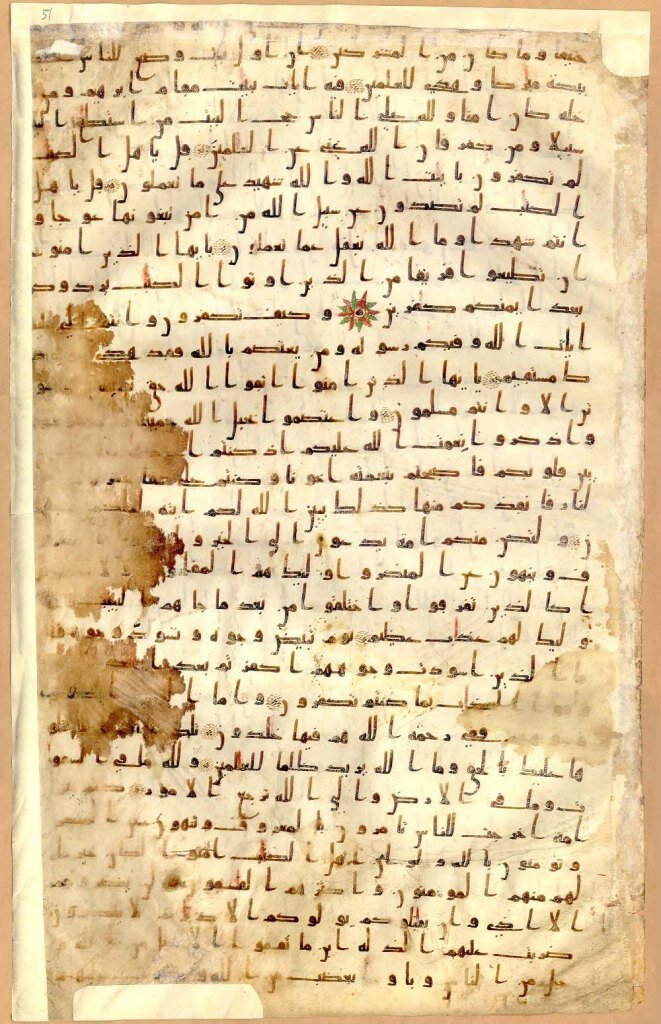 حنيفا وما كان من المشركين ان اول بيت وضع للناس
ببكة مبركا وهدى للعلمين فيه ايت بينت مقام ابرهيم ومن
دخله كان امنا ولله على الناس حج البيت من استطاع
سبيلا ومن كفر فان الله غني عن العلمين قل ياهل الكتب
لم تكفرون بايت الله والله شهيد على ما تعملون قل ياهل
الكتب لم تصدون عن سبيل الله من امن تبغونها عوجا و
انتم شهدا وما الله بغفل عما تعملون يايها الذين امنوا
ان تطيعوا فريقا من الذين اوتوا الكتب يردوكم
بعد ايمنكم كفرين وكيف تكفرون وانتم
ايت الله وفيكم رسوله ومن يعتصم بالله فقد هدي
مستقيم يايها الذين امنوا اتقوا الله حق
تن الا وانتم مسلمون واعتصموا بحبل الله جميعا
واذكروا نعمت الله عليكم اذ كنتم
بين قلوبكم فاصبحتم بنعمته اخونا وكنتم على شفا
النار فانقذكم منها كذلك يبين الله لكم ايته
ن ولتكن منكم امة يدعون الى الخير و
ف وينهون عن المنكر واوليك هم المفلحون ولا
كالذين تفرقوا واختلفوا من بعد ما جاهم البينت
و اوليك لهم عذاب عظيم يوم تبيض وجوه وتسود وجوه فا
ما الذين اسودت وجوههم اكفرتم بعد
العذاب بما كنتم تكفرون واما
ففي رحمة الله هم فيها خلدون تلك
ها عليك بالحق وما الله يريد ظلما للعلمين ولله ما في السمو
ت وما في الارض والى الله ترجع الامور
امة اخرجت للناس تامرون بالمعروف وتنهون عن المنكر
وتومنون بالله ولو امن اهل الكتب لكان خير
لهم منهم المومنون واكثرهم الفسقون لن
الا اذى وان يقتلوكم يولوكم الادبر
ضربت عليهم الذلة اين ما ثقفوا الا بحبل من الله
حبل من الناس وباو بغضب من الله